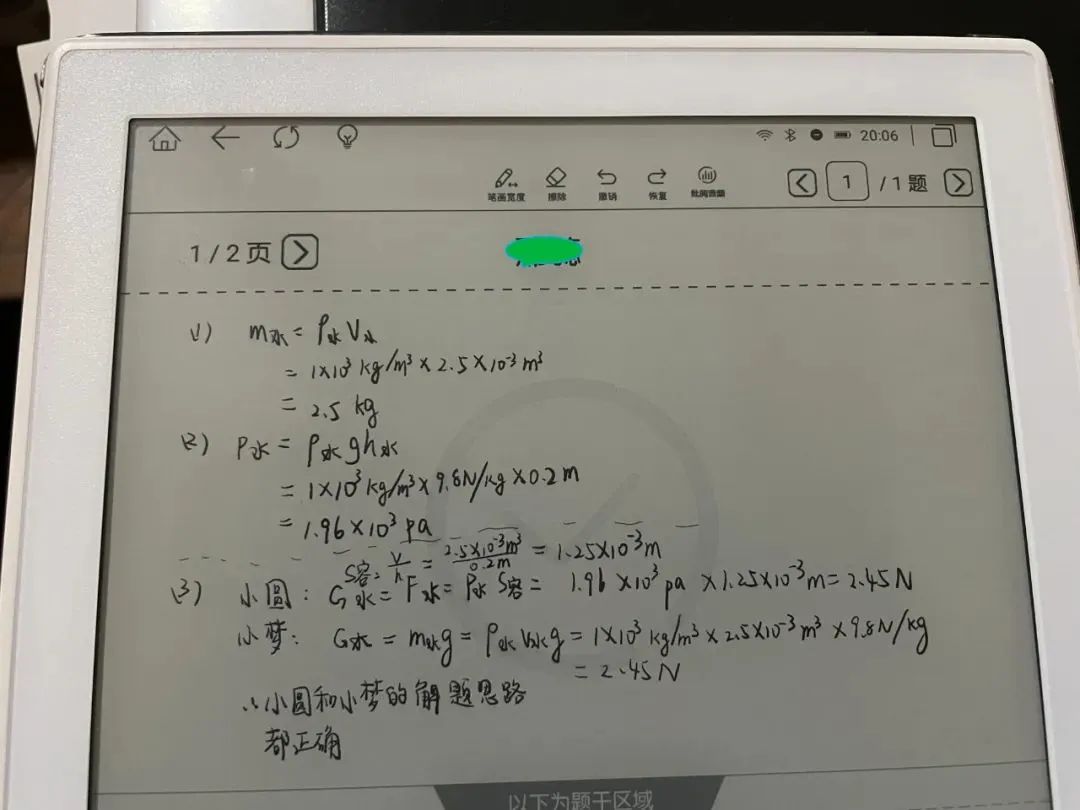 20:06
笔画宽度 擦除 撤销 恢复
1 / 1 题
1 / 2 页
(1) m水 = ρ水 V水
= 1×10³ kg/m³ × 2.5×10⁻³ m³
= 2.5 kg
(2) P水 = ρ水 g h水
= 1×10³ kg/m³ × 9.8N/kg × 0.2m
= 1.96×10³ pa
S容 = V/h = 2.5×10⁻³m³/0.2m = 1.25×10⁻³m
(3) 小圆: G水 = F水 = P水 S容 = 1.96×10³ pa × 1.25×10⁻³m = 2.45N
小梦: G水 = m水g = ρ水V水g = 1×10³ kg/m³ × 2.5×10⁻³ m³ × 9.8N/kg
= 2.45N
∴小圆和小梦的解题思路
都正确
以下为题干区域